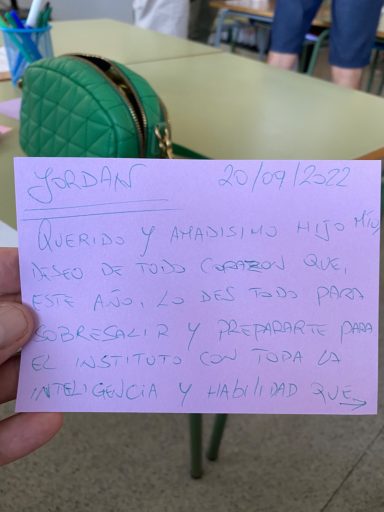 JORDAN 20/09/2022
QUERIDO Y AMADISIMO HIJO MIO,
DESEO DE TODO CORAZON QUE,
ESTE AÑO, LO DES TODO PARA
SOBRESALIR Y PREPARARTE PARA
EL INSTITUTO CON TODA LA
INTELIGENCIA Y HABILIDAD QUE →